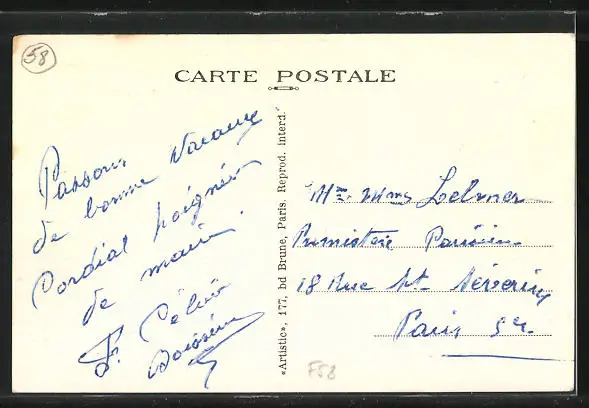 58
CARTE POSTALE
Passons
de bonne vacance
Cordial poignée
de main.
F.
«Artistic», 177, bd Brune, Paris. Reprod. interd.
Mr. Mme Lelmer
18 Rue St Séverin
Paris 5e.
F58